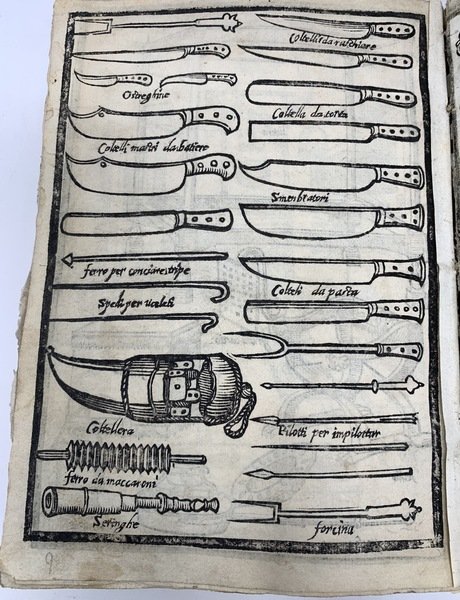 Coltelli da raschiare
Ostreghine
Coltella da torta
Coltelli mastri da batere
Smenbratori
ferro per conciare stripe
Colteli da pasta
Spedi per uceleti
Coltellera
Pilotti per impilottar
ferro da maccaroni
Seringhe
forcina